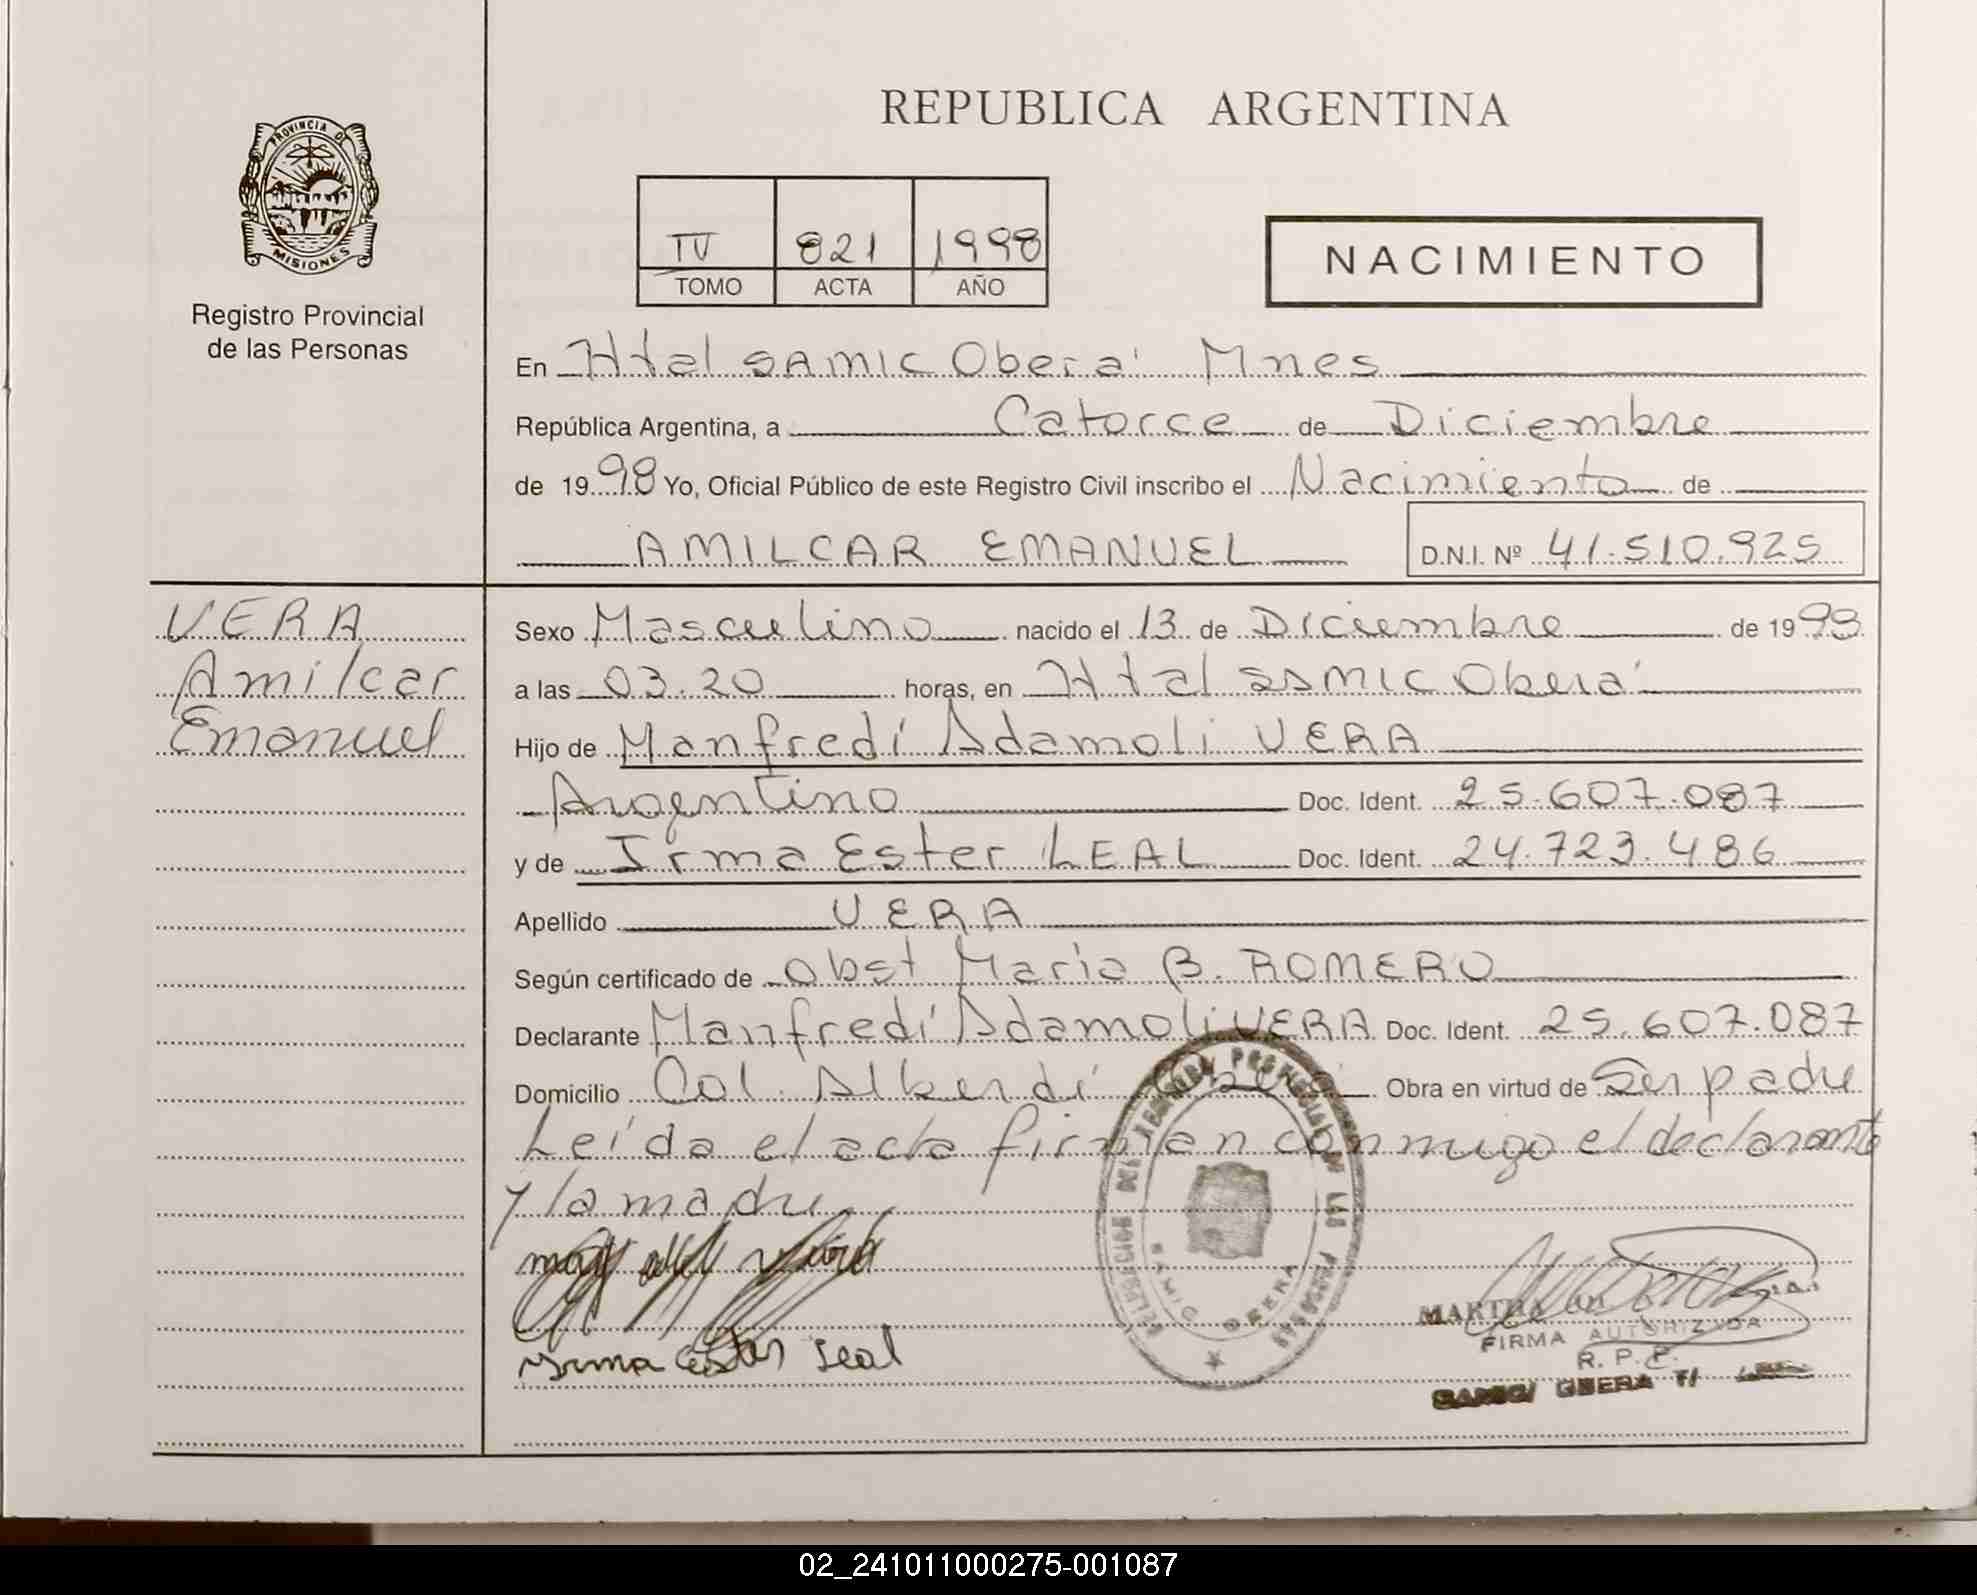 REPUBLICA ARGENTINA
PROVINCIA DE
MISIONES
Registro Provincial
de las Personas
IV 821 1998
TOMO ACTA AÑO
NACIMIENTO
En Htal SAMIC Oberá Mnes
República Argentina, a Catorce de Diciembre
de 1998 Yo, Oficial Público de este Registro Civil inscribo el Nacimiento de
AMILCAR EMANUEL D.N.I. Nº 41.510.925
VERA
Amilcar
Emanuel
Sexo Masculino nacido el 13 de Diciembre de 1998
a las 03.20 horas, en Htal SAMIC Oberá
Hijo de Manfredí Adamoli VERA
Argentino Doc. Ident. 25.607.087
y de Irma Ester LEAL Doc. Ident. 24.723.486
Apellido VERA
Según certificado de Obst María B. ROMERO
Declarante Manfredí Adamoli VERA Doc. Ident. 25.607.087
Domicilio Col. Alberdí Oberá Obra en virtud de Ser padre
Leída el acta firman conmigo el declarante
y la madre
Irma Ester Leal
MARTHA
FIRMA AUTORIZADA
R. P. P.
SAMIC/ OBERA
02_241011000275-001087